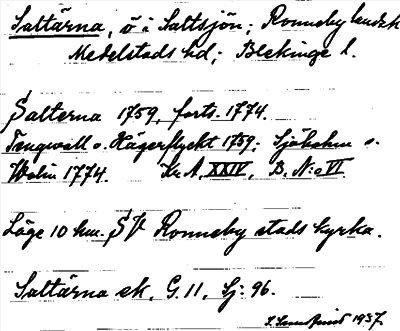 Saltärna, ö i Saltsjön; Ronneby landsk
Medelstads hd; Blekinge l.
Salterna 1759, forts. 1774.
Tengwall o. Hägerflyckt 1759; Sjöholm o.
Wolin 1774. Kr. A. XXIV, B. N:o VI.
Läge 10 km. SV Ronneby stads kyrka.
Saltärna ek. G. 11, Sj: 96.
1937